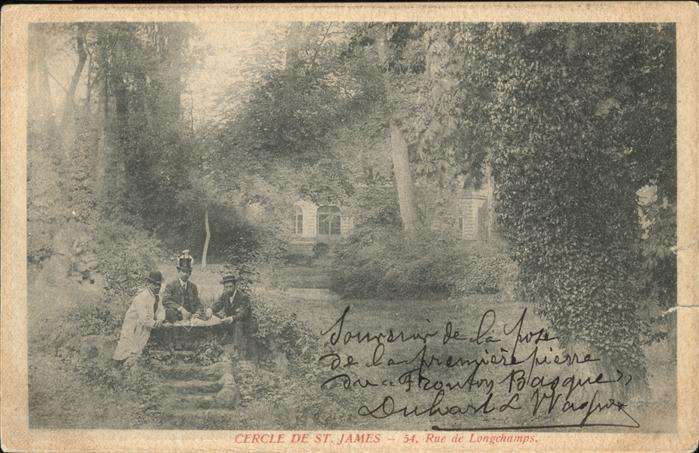 Souvenir de la pose
de la première pierre
du "Fronton Basque"
Duhart L
CERCLE DE ST. JAMES — 54, Rue de Longchamps.